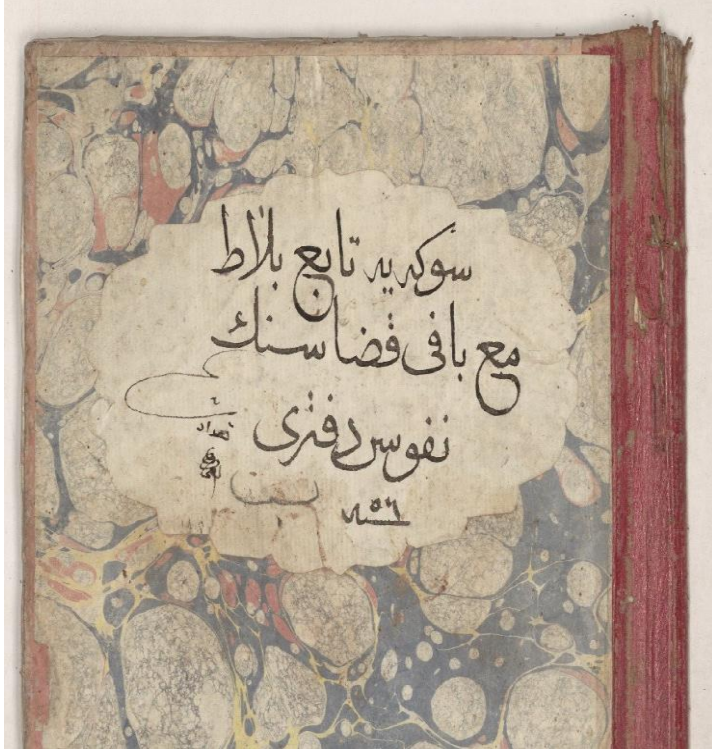 سوكه‌يه تابع بلاط
مع بافى قضاسنك
نفوس دفترى
تعداد
سنه ٥٦